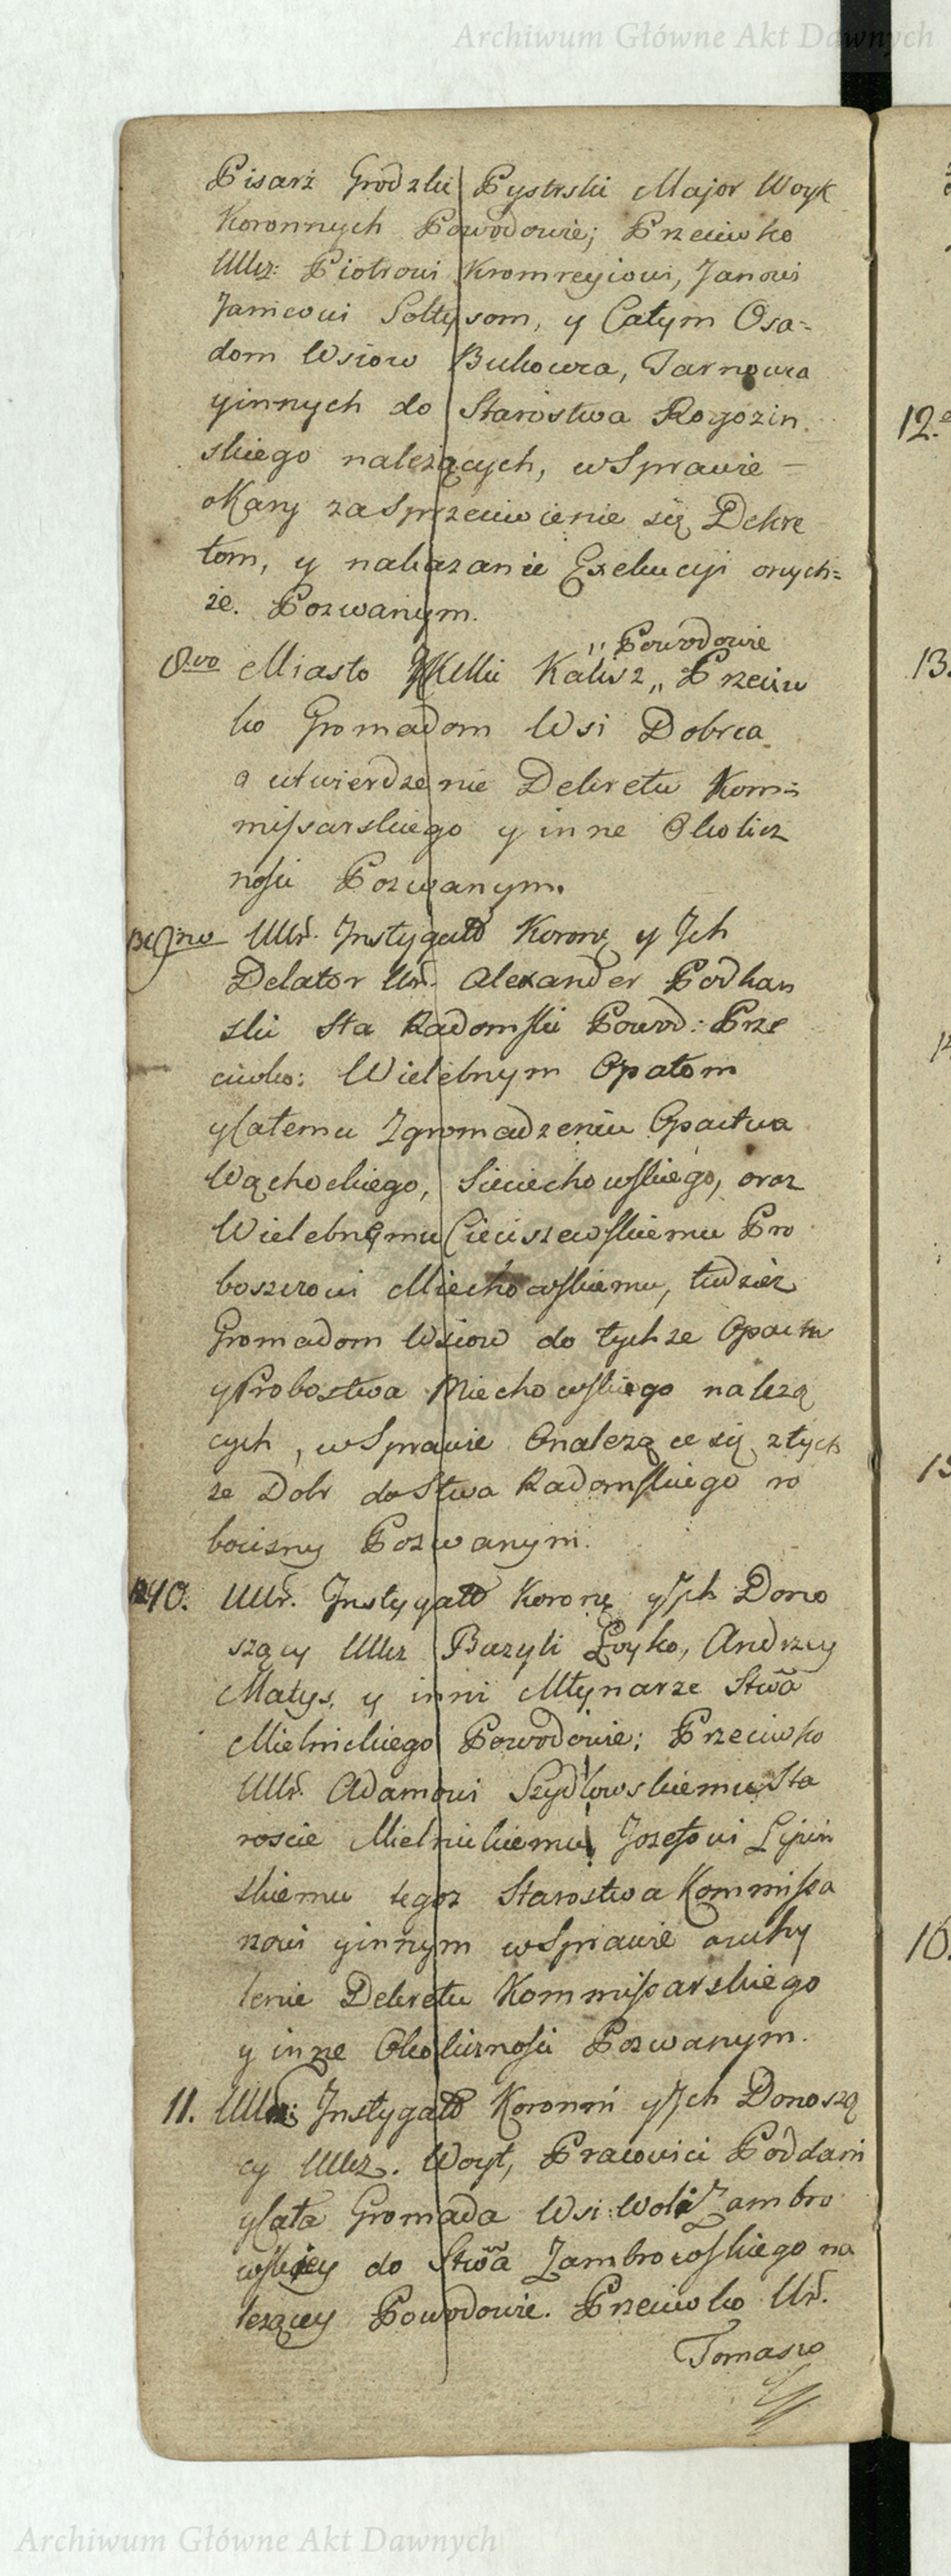 Archiwum Główne Akt Dawnych
Pisarz Grodzki Pystrski Major Woysk
Koronnych Powodowie; Przeciwko
UUrz: Piotrowi Kromreyiowi, Janowi
Janicowi Sołtysom, y Całym Osa=
dom Wsiow Bukowca, Tarnowca
yinnych do Starostwa Rogozin
skiego należących, wSprawie –
oKary zaSprzeciwienie się Dekre
tom, y nakazanie Exekucyi onych=
że. Pozwanym.
„ Powodowie
8vo Miasto JKMci Kalisz „ Przeciw
ko Gromadom Wsi Dobrca
o utwierdzenie Dekretu Kom=
missarskiego y inne Okolicz
nosci Pozwanym.
UUr. Instygato Koronę y Ich
Delator Ur. Alexander Podkan
ski Sta Radomski Powod: Prze
ciwko: Wielebnym Opatom
yCałemu Zgromadzeniu Opactwa
Wąchockiego, Sieciechowskiego, oraz
Wielebnemu Cieciszewskiemu Pro
boszczowi Miechowskiemu, tudzież
Gromadom Wsiow do tychże Opactw
yProbostwa Miechowskiego należą
cych, wSprawie Onależące się ztych
że Dobr doStwa Radomskiego ro
bocizny Pozwanym.
10. UUr. Instygato Koronę yIch Dono
szący UUrz Bazyli Łoyko, Andrzey
Matys, y inni Młynarze Stwa
Mielnickiego Powodowie; Przeciwko
UUr. Adamowi Szydłowskiemu Sta
roscie Mielnickiemu, Jozefowi Lipin
skiemu tegoz Starostwa Kommissa
rzowi yinnym wSprawie ouchy
lenie Dekretu Kommissarskiego
y inne Okolicznosci Pozwanym.
11. Instygato Koronni yIch Donoszą
cy UUrz. Woyt, Pracowici Poddani
yCała Gromada Wsi Woli Zambro
wskiey do Stwa Zambrowskiego na
leżącey Powodowie. Przeciwko Ur.
Tomaszo
12.
13.
15
16.
Archiwum Główne Akt Dawnych